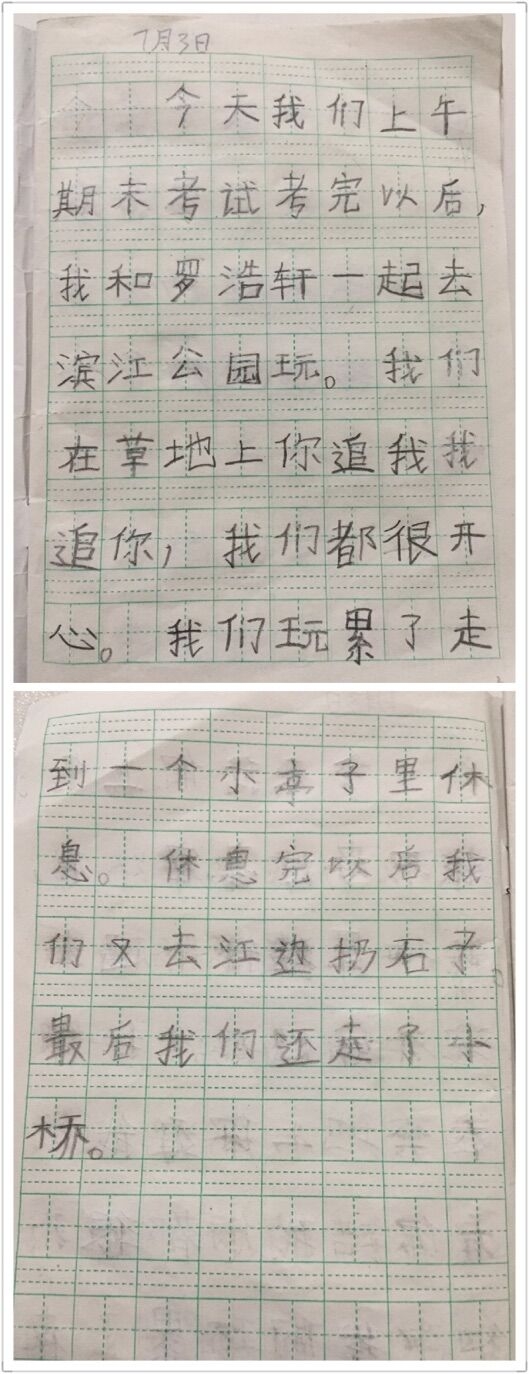 7月3日
今天我们上午
期末考试考完以后,
我和罗浩轩一起去
滨江公园玩。我们
在草地上你追我我
追你,我们都很开
心。我们玩累了走
到一个小亭子里休
息。休息完以后我
们又去江边扔石子。
最后我们还走了小
桥。